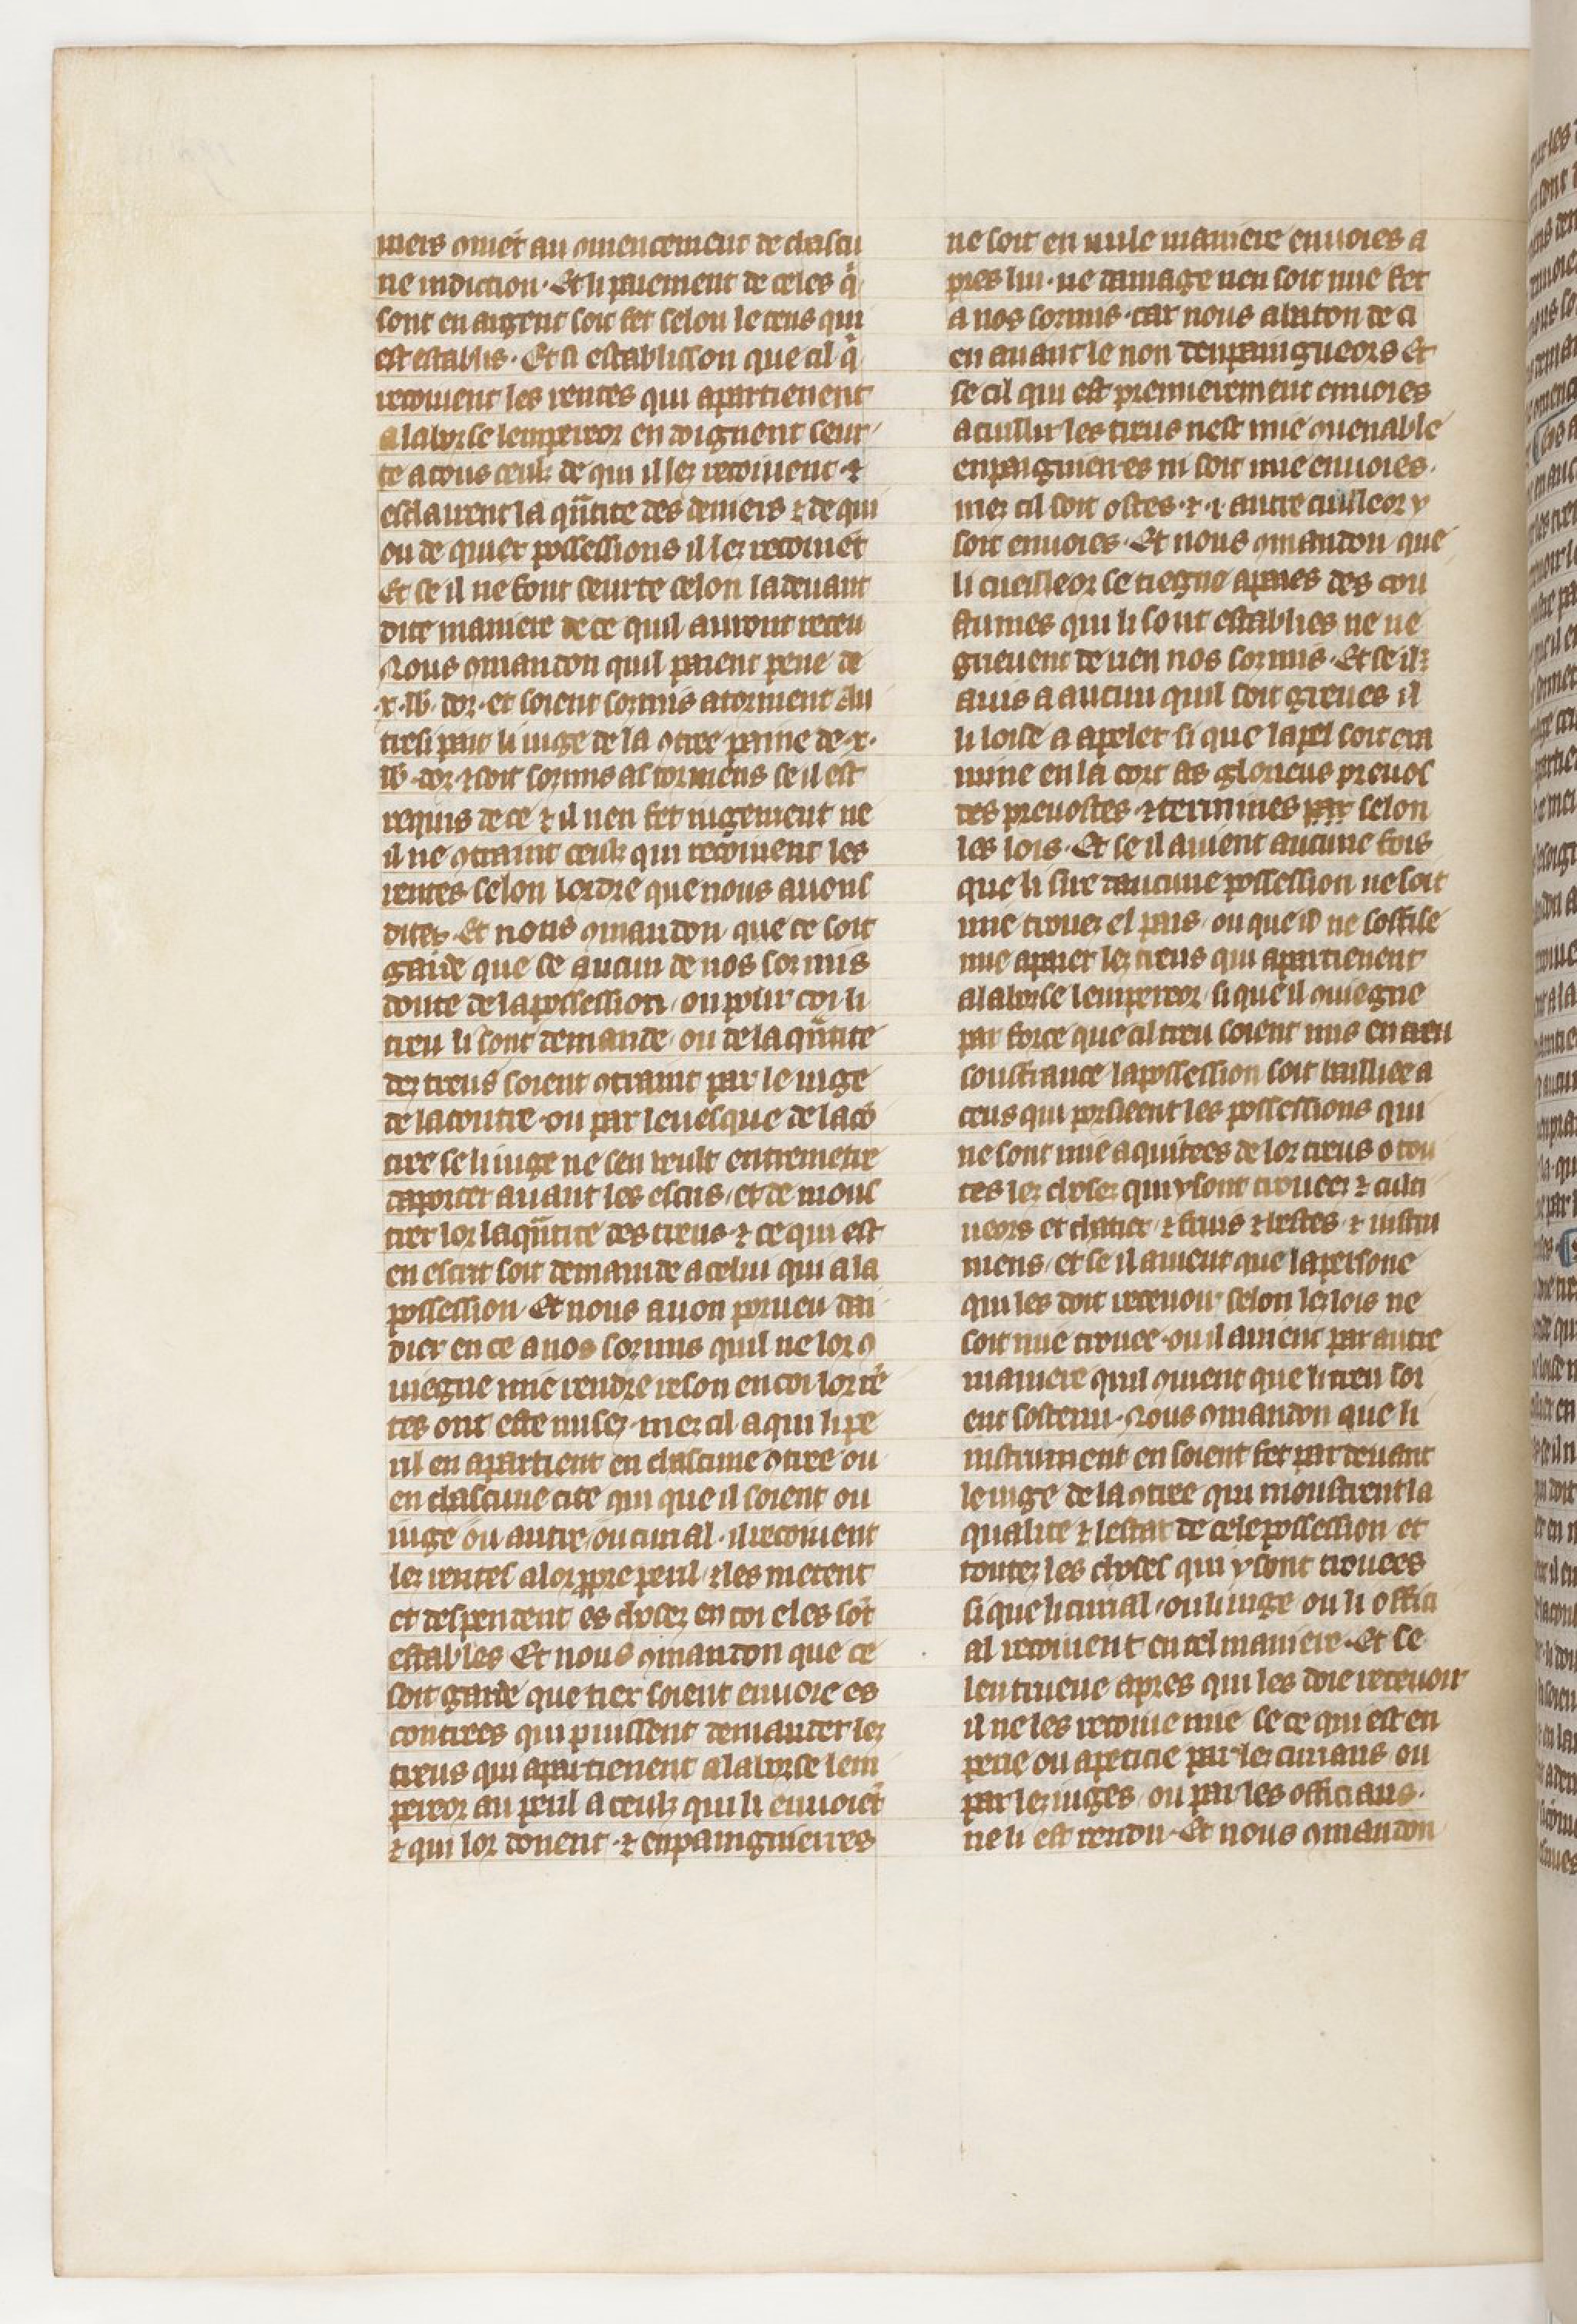 niers ꝯmēt au ꝯmencement de chascu
ne indiction. Et li paiement de celes q̇
sont en argent soit fet selon le tens qui
est establis. Et si establisson que cil q̇
recoiuent les rentes qui apartienent
a la borse lempereor en doignent seur
te a touz ceulz de qui il lez recoiuent ⁊
esclairent la qūtite des deniers ⁊ de qui
ou de quiex possessions il lez recoiuēt
Et se il ne font seurte selon la deuant
dite maniere de ce quil auront receu
Nous ꝯmandon quil paient peine de
.x. lb. dor. et soient sozmis a torment Au
tresi pait li iuge de la ꝯtree paine de .x.
lb. dor ⁊ soit sozmis as tormens se il est
requis de ce ⁊ il nen fet iugement ne
il ne ꝯtraint ceulz qui recoiuent les
rentes selon lordre que nous auons
dites. Et nous ꝯmandon que ce soit
garde que se aucun de nos sozmis
doute de la possession / ou pour coi li
treu li sont demande / ou de la qūtite
dez treus soient ꝯtraint par le iuge
de la contree ou par leuesque de la cō
tree se li iuge ne sen veult entremetre
daporter auant les escris / et de mons
trer lor la qūtite des treus ⁊ ce qui est
en escrit soit demande a celui qui a la
possession Et nous auon porueu dai
dier en ce a nos sozmis quil ne lor ꝯ
uiegne mie rendre reson en coi lor rē
tes ont este mises mez cil a qui li pe
ril en apartient en chascune ꝯtree ou
en chascune cite qui que il soient ou
iuge ou autre / ou curial il recoiuent
lez rentes a lor ꝓpre peril ⁊ les metent
et despendent es chosez en coi eles sōt
establies Et nous ꝯmandon que ce
soit garde que tiex soient enuoie es
contrees qui puissent demander lez
treus qui apartienent a la borse lem
pereor au peril a ceulz qui li enuoiēt
⁊ qui lor donent. ⁊ enpaingnierres
ne soit en nule maniere enuoies a
pres lui. ne damage nen soit mie fet
a nos sozmis. car nous abaton de ci
en auant le non denpaingneors Et
se cil qui est premierement enuoies
a cuillir les treus nest mie ꝯuenable
enpaignierres ni soit mie enuoies.
mez cil soit ostes. ⁊ .i. autre cuilleor y
soit enuoies. Et nous ꝯmandon que
li cueilleor se tiegne apaies des cou
stumes qui li sont establies ne ne
grieuent de rien nos sozmis. Et se il ē
auis a aucun quil soit greues il
li loise a apeler si que lapel soit exa
mine en la cort as glorieus preuos
des preuostes. ⁊ termines par selon
les lois. Et se il auient aucune fois
que li sire daucune possession ne soit
mie trouez el pais / ou que il ne soffise
mie a paier lez treus qui apartienent
a la borse lempereor / si que il ꝯuiegne
par force que cil treu soient mis en treu
soustrance la possession soit bailliee a
ceus qui porsieent les possessions qui
ne sont mie aquitees de lor treus o tou
tes lez chosez qui y sont trouees ⁊ culti
ueors et chatex / ⁊ fruis ⁊ bestes ⁊ instru
mens / et se il auient que la persone
qui les doit receuoir selon lez lois ne
soit mie trouee ou il auient par autre
maniere quil ꝯuient que li treu soi
ent sostenu. Nous ꝯmandon que li
instrument en soient fet par deuant
le iuge de la ꝯtree qui moustrent la
qualite ⁊ lestat de cele possession et
toutez les choses qui y sont trouees
si que li curial / ou li iuge ou li offici
al recoiuent en tel maniere. Et se
len trueue apres qui les doie receuoir
il ne les recoiue mie se ce qui est en
perie ou apeticie par lez curiaus ou
par lez iuges / ou par les officiaus.
ne li est rendu. Et nous ꝯmandon